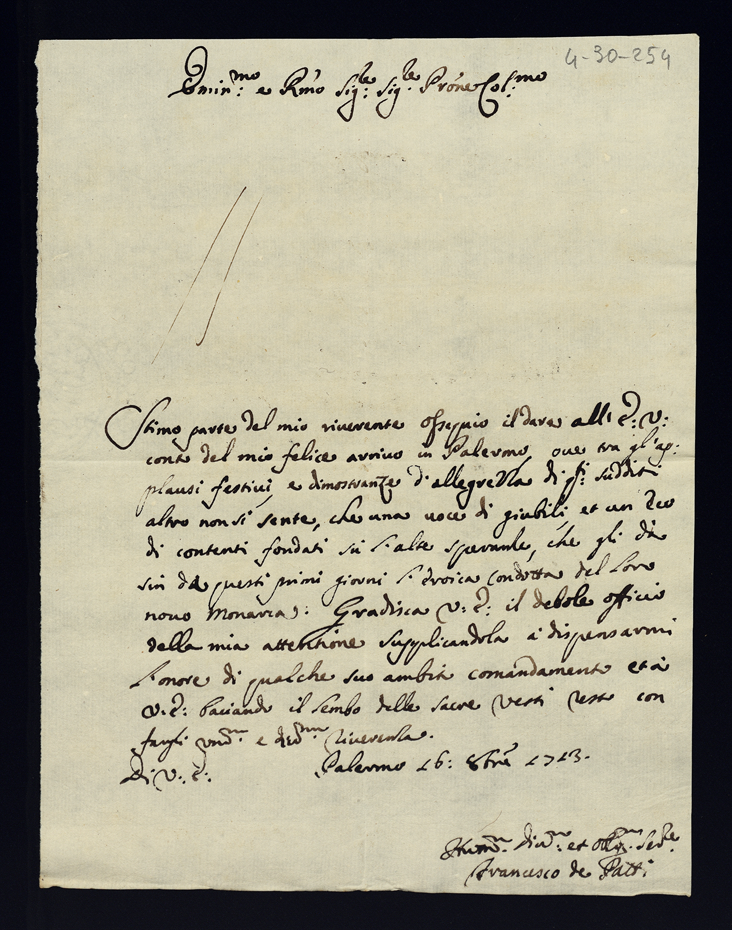 4-30-254
Emin:mo e Rmo Sig:re Sig:re Prone Col:mo
Stimo parte del mio riverente ossequio il dare all' E: V:
conto del mio felice arrivo in Palermo, ove tra gl'ap:
plausi festivi, e dimostranze d'allegrezza di q.sti sudditi
altro non si sente, che una voce di giubili, et un Eco
di contenti fondati sù l'alte speranze, che gli dà
sin da questi primi giorni l'Eroica Condotta del loro
novo Monarca: Gradisca V: E: il debole officio
della mia attentione supplicandola à dispensarmi
l'onore di qualche suo ambito comandamento et à
V: E: baciando il lembo delle sacre Vesti resto con
fargli um.ma e div.ma riverenza.
Di V: E: Palermo 16: 8bre 1713.
Hum.mo Div.mo et Obl.mo Ser.re
Francesco de Patti